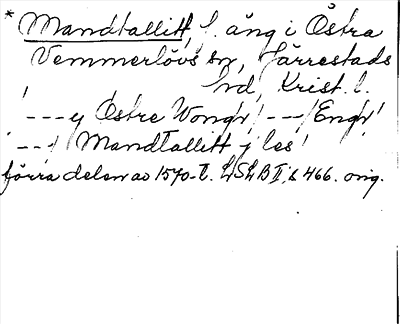 * Mandtallitt, f. äng i Östra
Vemmerlövs sn, Järrestads
hd, Krist. l.
"--- y Östre Wongr/ ---/ Engr/
---/ Mandtallitt j les"
förra delen av 1570-t. LSLB II, s 466. orig.